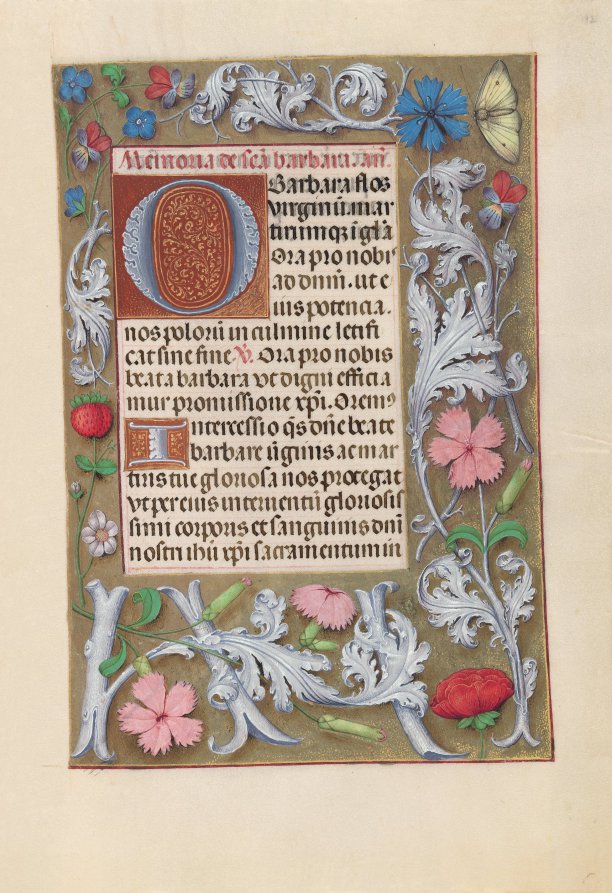 Memoria de scā barbara. an̄.
O Barbara flos
virginū. mar
tirum qz igl̄a
Ora pro nobi
ad dnm̄. ut e
ius potencia.
nos polorū in culmine letifi
cat sine fine V̄. Ora pro nobis
beata barbara vt digni efficia
mur promissione xp̄i. Oremꝰ
Intercessio q̄s dn̄e beate
barbare v̄ginis ac mar
tiris tue gloriosa nos protegat
vt per eius interuentū gloriosis
simi corporis et sanguinis dn̄i
nostri ihū xp̄i sacramentum in